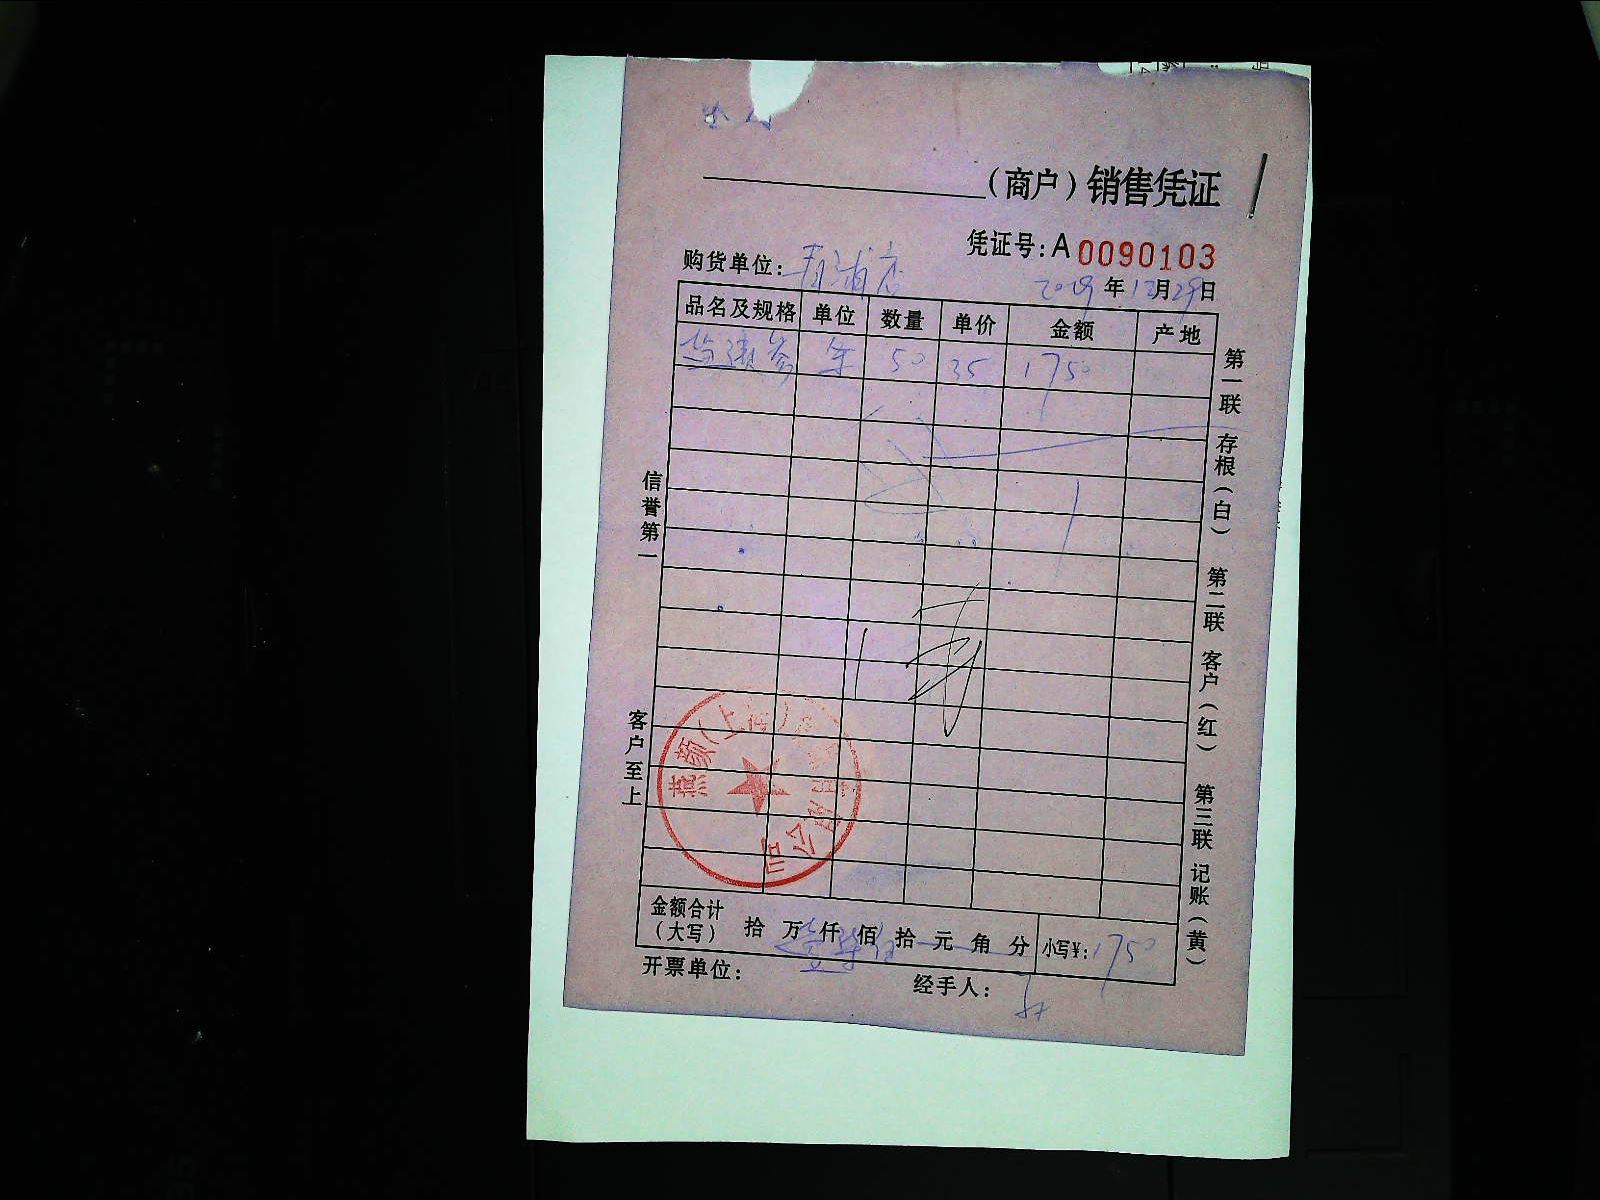 (商户)销售凭证
凭证号:A 0090103
购货单位:青浦店
2019年12月29日
品名及规格 单位 数量 单价 金额 产地
50 35 1750
信誉第一
客户至上
第一联 存根(白) 第二联 客户(红) 第三联 记账(黄)
燕颜(上海)
公司
金额合计(大写) 拾 万 仟 佰 拾 元 角 分 小写¥:1750
壹 柒 伍
开票单位: 经手人: